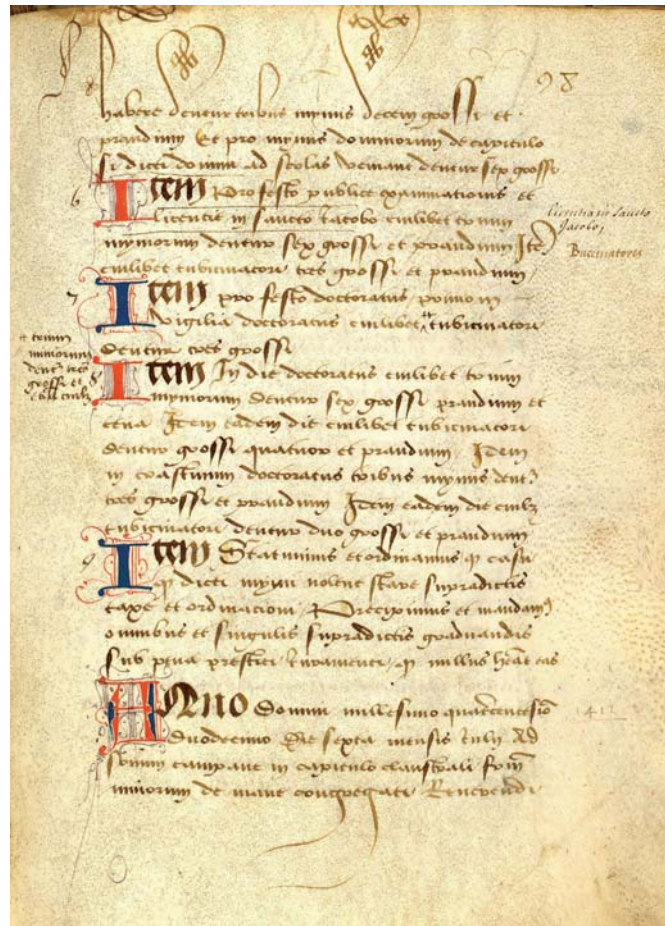 98
habere dentur tribus mymis decem grossi et
prandium Et pro mymis dominorum de capitulo
si dicti domini ad scolas veniant dentur sex grossi
6
Item Pro festo publice examinationis et
licentie in sancto Jacobo cuilibet trium
licentia in sancto
Jacobo,
mymorum dentur sex grossi et prandium Ite
Buccinatores
cuilibet tubicinatori tres grossi et prandium
7
Item pro festo doctoratus primo in
vigilia doctoratus cuilibet tubicinatori
dentur tres grossi
et trium
mimorum
dent tres
grossi et
8
Item In die doctoratus cuilibet trium
mymorum dentur sex grossi prandium et
cena Idem eadem die cuilibet tubicinatori
dentur grossi quatuor et prandium Idem
in crastinum doctoratus tribus mymis dent
tres grossi et prandium Idem eadem die cuilz
tubicinatori dentur duo grossi et prandium
9
Item Statuimus et ordinamus q casu
q dicti mymi nolint stare supradictis
taxe et ordinacioni Precipimus et mandam
omnibus et singulis supradictis graduandis
sub pena prestiti Juramenti q nullus heat eas
Anno Domini millesimo quadcentesio
1412
duodecimo Die sexta mensis Julij Ad
sonum campane in capitulo claustrali frm
minorum de mane congregati Reverendi